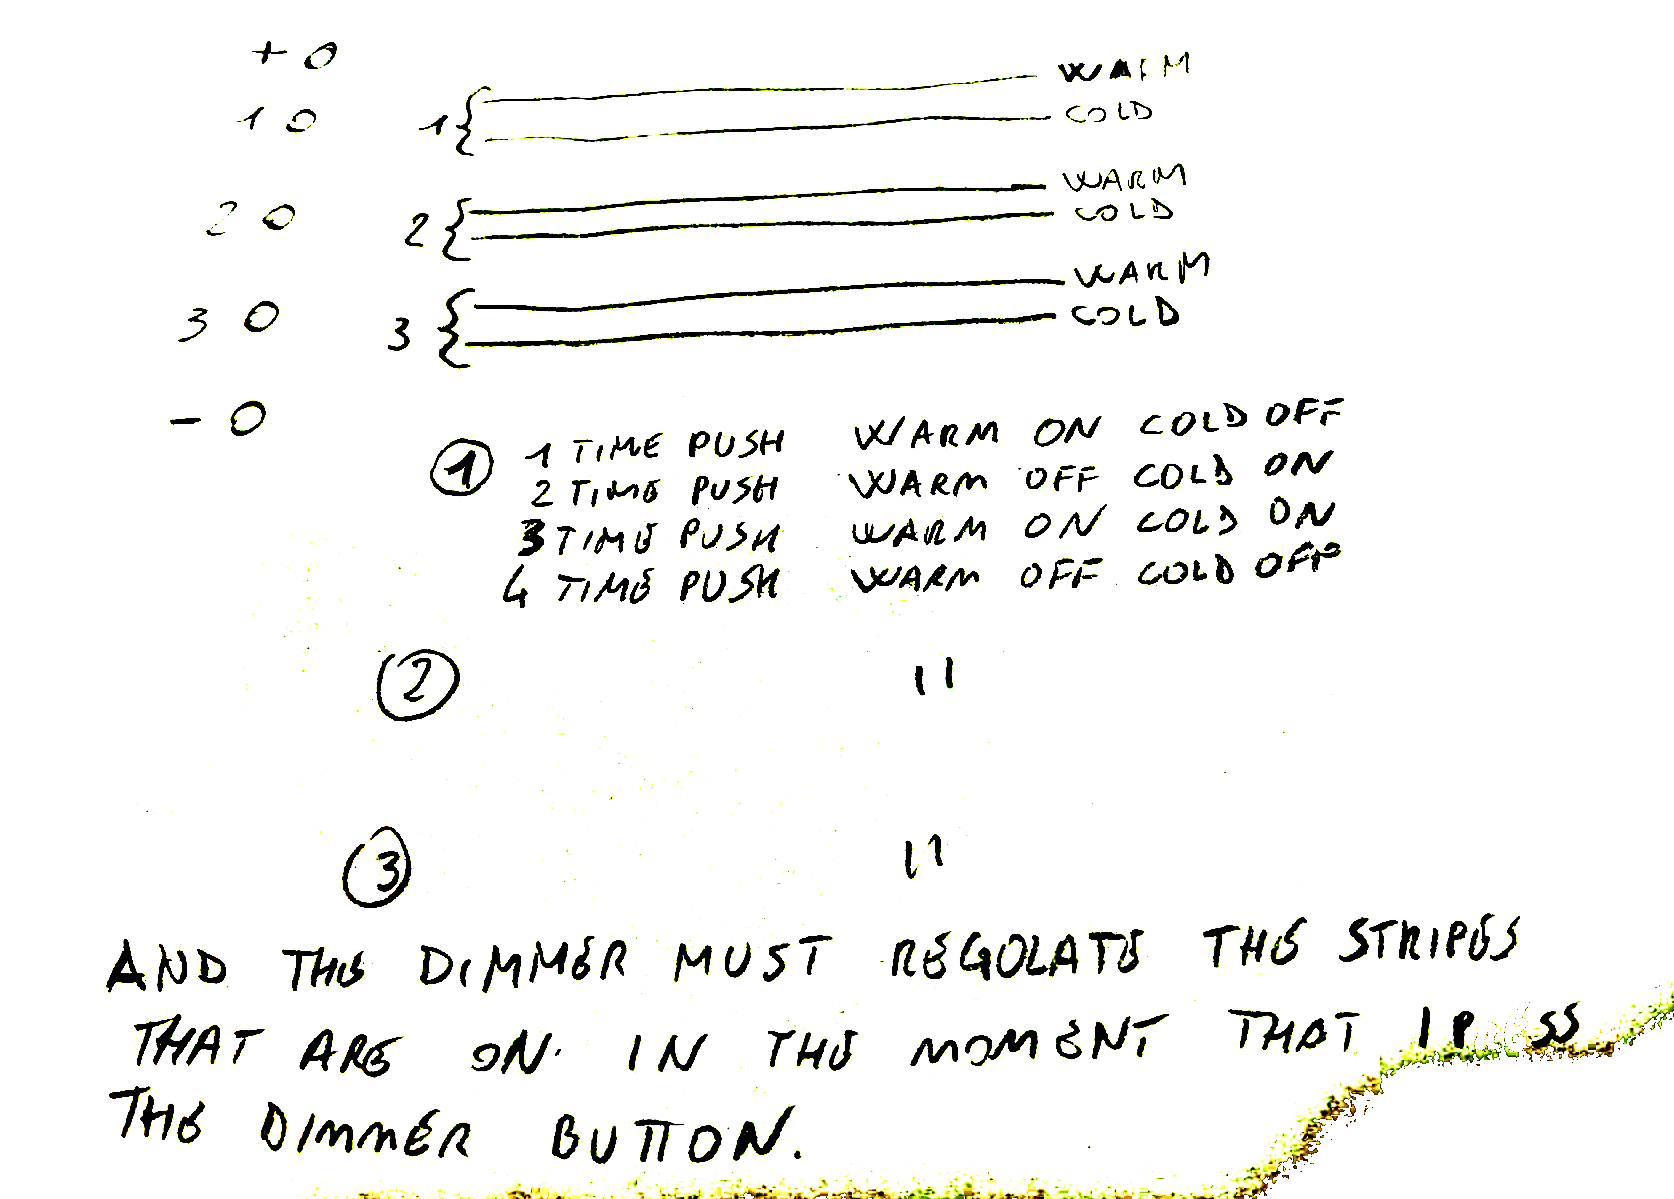 + O
WARM
1 O 1 { COLD
WARM
2 O 2 { COLD
WARM
3 O 3 { COLD
- O
① 1 TIME PUSH WARM ON COLD OFF
2 TIME PUSH WARM OFF COLD ON
3 TIME PUSH WARM ON COLD ON
4 TIME PUSH WARM OFF COLD OFF
② 11
③ 11
AND THE DIMMER MUST REGOLATE THE STRIPES
THAT ARE ON. IN THE MOMENT THAT I
THE DIMMER BUTTON.